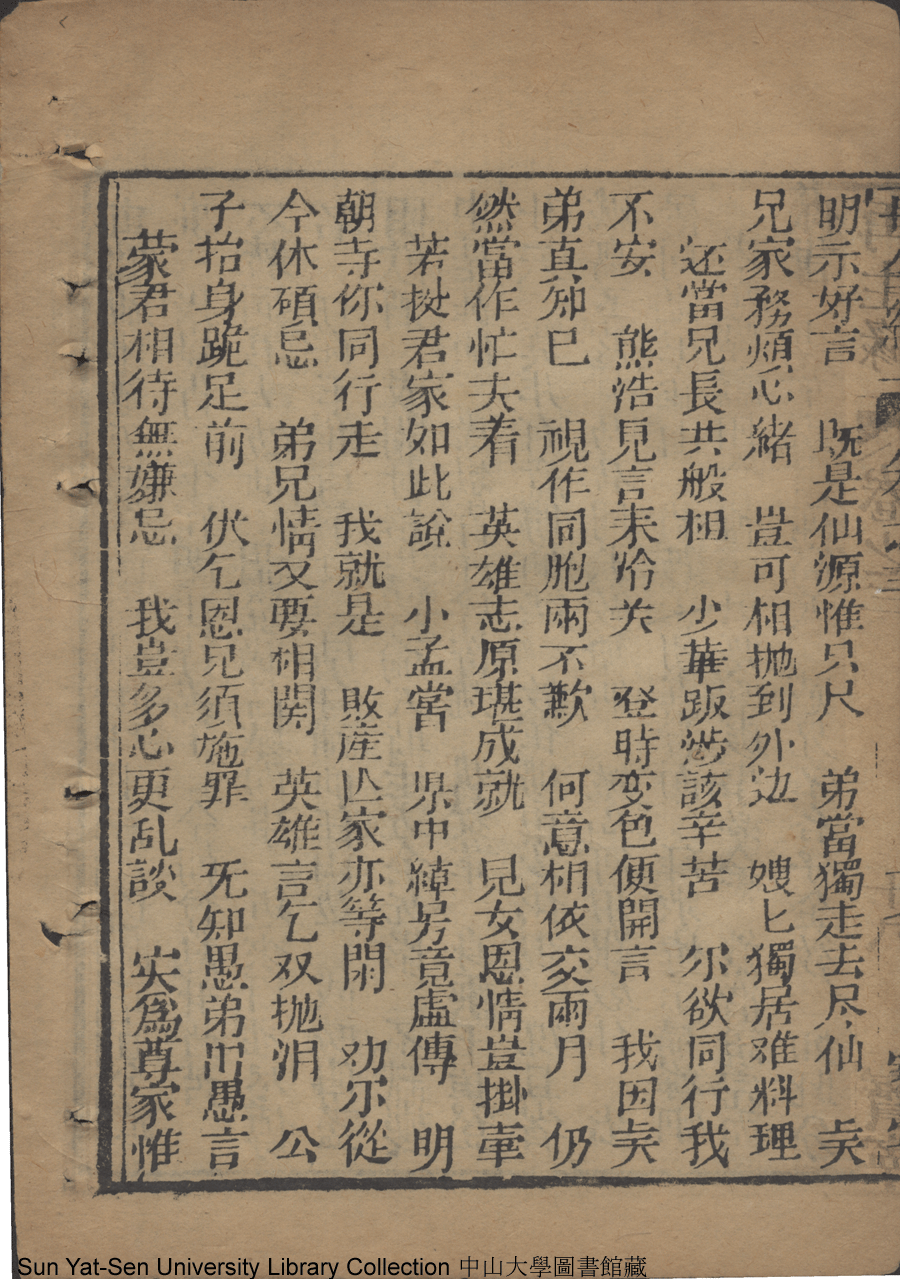 明示好言　既是仙源惟只尺　弟當獨走去尽仙　㠯
兄家務煩心緒　豈可相抛到外边　嫂匕獨居难料理
还當兄長共般相　少華跋涉該辛苦　尔欲同行我
不安　熊浩見言耒怜关　登時变色便開言　我因㠯
弟真如巳　視作同胞兩不歉　何意相依交兩月　仍
然當作忙夫着　英雄志原堪成就　見女恩情豈掛牽
若挺君家如此說　小孟嘗　県中綽号竟虛傳　明
朝寺你同行走　我就是　敗産亾家亦等閑　劝尔從
今休碩忌　弟兄情又要相関　英雄言乞双抛泪　公
子抬身跪足前　伏乞恩兄須施罪　旡知愚弟出愚言
蒙君相待無嫌忌　我豈多心更乱談　实為尊家惟
Sun Yat-Sen University Library Collection 中山大學圖書館藏